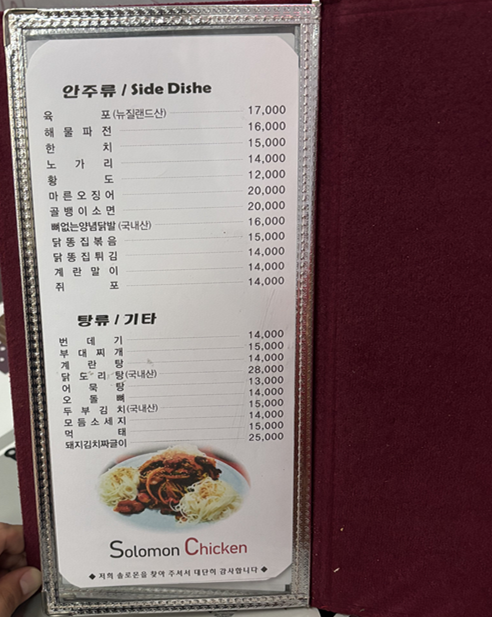 안주류 / Side Dishe
육 포 (뉴질랜드산) 17,000
해 물 파 전 16,000
한 치 15,000
노 가 리 14,000
황 도 12,000
마 른 오 징 어 20,000
골 뱅 이 소 면 20,000
뼈없는양념닭발 (국내산) 16,000
닭 똥 집 볶 음 15,000
닭 똥 집 튀 김 14,000
계 란 말 이 14,000
쥐 포 14,000
탕류 / 기타
번 데 기 14,000
부 대 찌 개 15,000
계 란 탕 14,000
닭 도 리 탕 (국내산) 28,000
어 묵 탕 13,000
오 돌 뼈 14,000
두 부 김 치 (국내산) 15,000
모 듬 소 세 지 14,000
먹 태 15,000
돼지김치짜글이 25,000
Solomon Chicken
◆ 저희 솔로몬을 찾아 주셔서 대단히 감사합니다 ◆